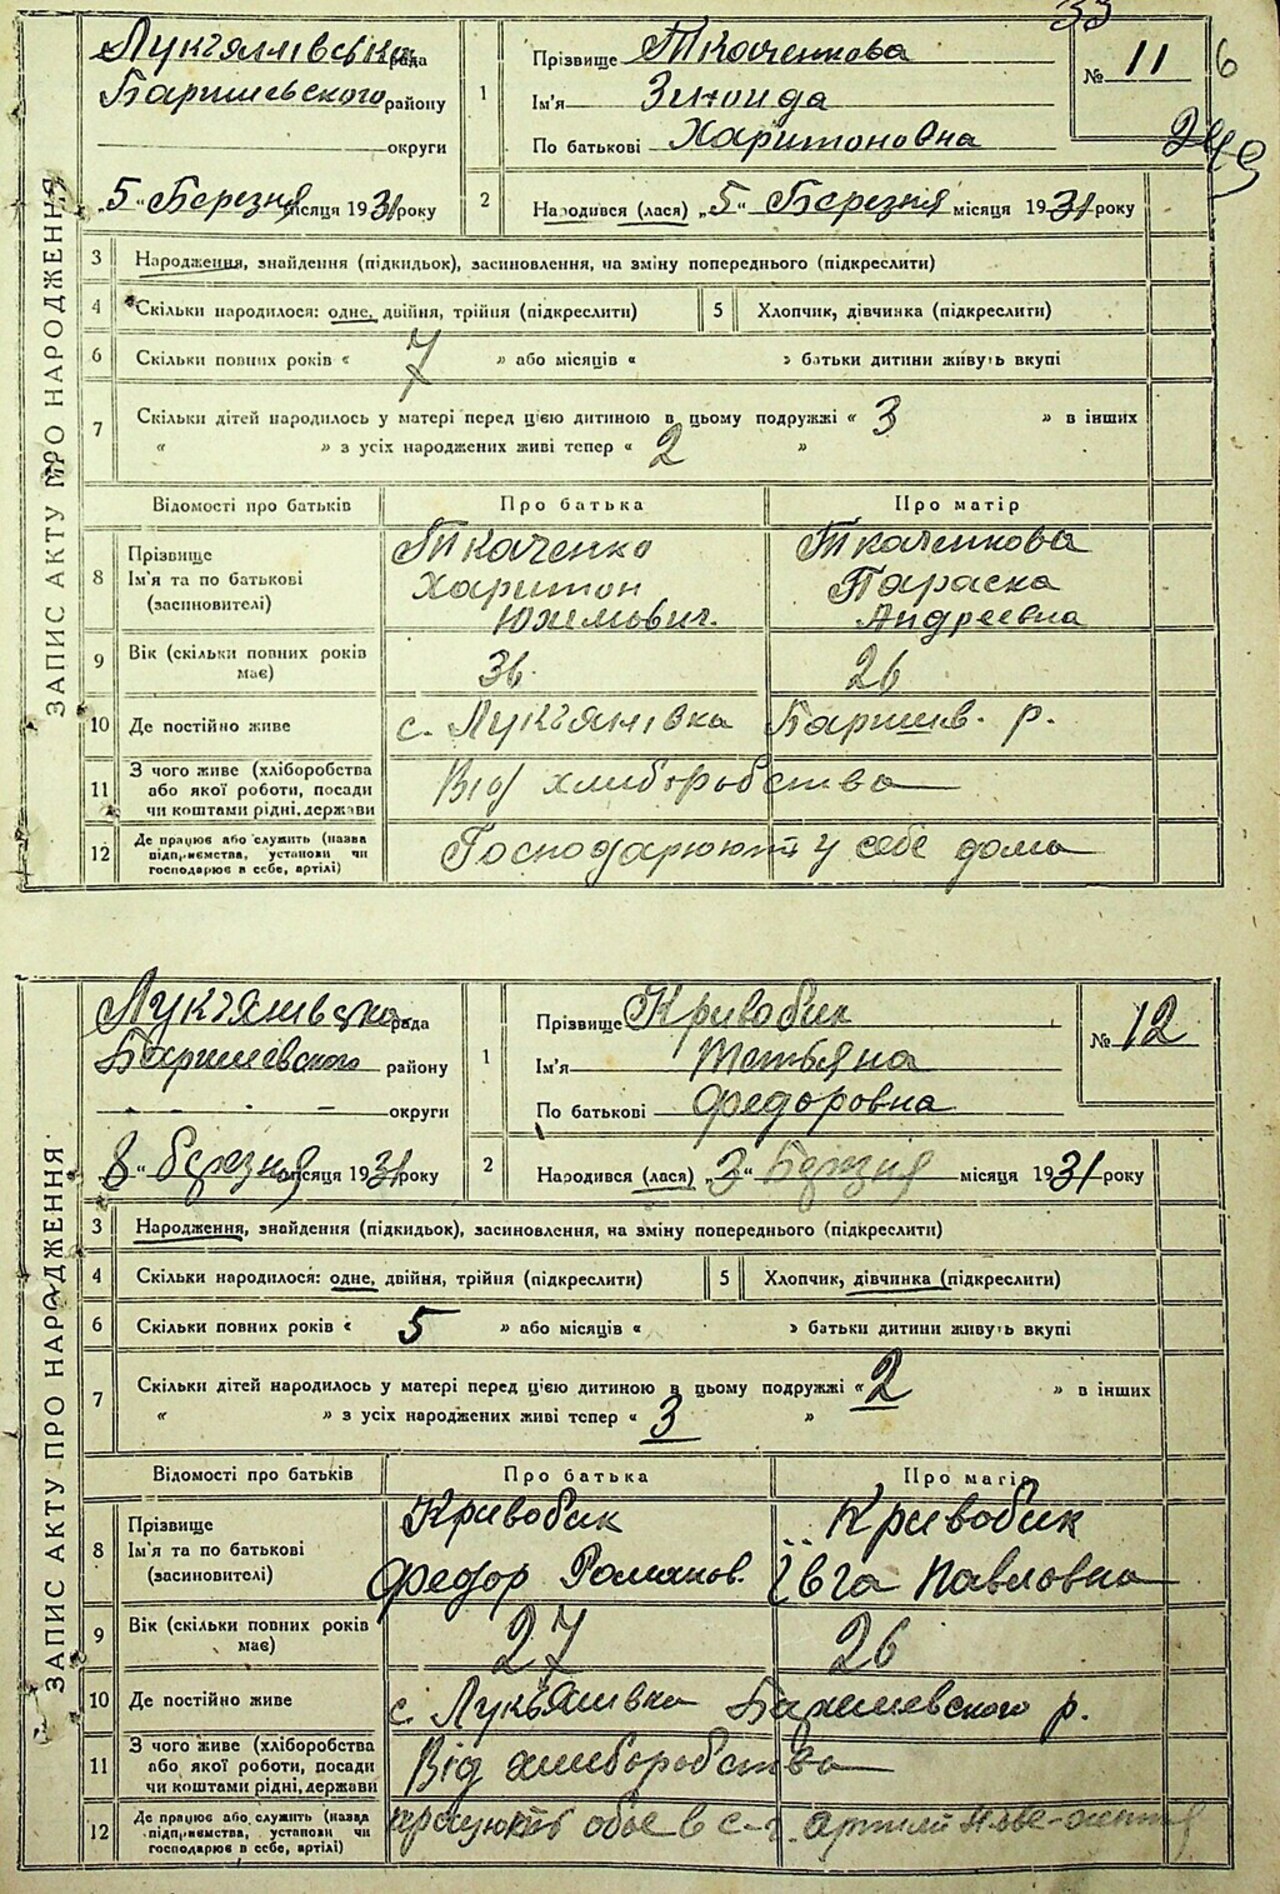 33
Лукъянивська рада
Баришевського району
округи
„5“ Березня місяця 1931 року
1
Прізвище Ткаченкова
Ім'я Зиноида
По батькові Харитоновна
№ 11
6
249
2
Народився (лася) „5“ Березня місяця 1931 року
ЗАПИС АКТУ ПРО НАРОДЖЕННЯ
3 Народження, знайдення (підкидьок), засиновлення, на зміну попереднього (підкреслити)
4 Скільки народилося: одне, двійня, трійня (підкреслити)
5 Хлопчик, дівчинка (підкреслити)
6 Скільки повних років « 7 » або місяців « » батьки дитини живуть вкупі
7 Скільки дітей народилось у матері перед цією дитиною в цьому подружжі « 3 » в інших
« » з усіх народжених живі тепер « 2 »
Відомості про батьків Про батька Про матір
8
Прізвище
Ім'я та по батькові
(засиновителі)
Ткаченко
Харитон
Юхимович.
Ткаченкова
Параска
Андреевна
9 Вік (скільки повних років
має)
36. 26
10 Де постійно живе с. Лукъянівка Баришів. р.
11
З чого живе (хліборобства
або якої роботи, посади
чи коштами рідні, держави
Від хлиборобства
12
Де працює або служить (назва
підприємства, установи чи
господарює в себе, артілі)
Господарюют у себе дома
Лукъянивська рада
Баришевского району
округи
8 “ березня місяця 1931 року
1
Прізвище Кривобик
Ім'я Тетьяна
По батькові Федоровна
№ 12
2
Народився (лася) „3“ Березня місяця 1931 року
ЗАПИС АКТУ ПРО НАРОДЖЕННЯ
3 Народження, знайдення (підкидьок), засиновлення, на зміну попереднього (підкреслити)
4 Скільки народилося: одне, двійня, трійня (підкреслити)
5 Хлопчик, дівчинка (підкреслити)
6 Скільки повних років « 5 » або місяців « » батьки дитини живуть вкупі
7 Скільки дітей народилось у матері перед цією дитиною в цьому подружжі « 2 » в інших
« » з усіх народжених живі тепер « 3 »
Відомості про батьків Про батька Про матір
8
Прізвище
Ім'я та по батькові
(засиновителі)
Кривобик
Федор Романов.
Кривобик
Ївга Павловна
9 Вік (скільки повних років
має)
27 26
10 Де постійно живе с. Лукъянивка Баришевского р.
11
З чого живе (хліборобства
або якої роботи, посади
чи коштами рідні, держави
Від хлиборобства
12
Де працює або служить (назва
підприємства, установи чи
господарює в себе, артілі)
працюють обое в с-г. артилі